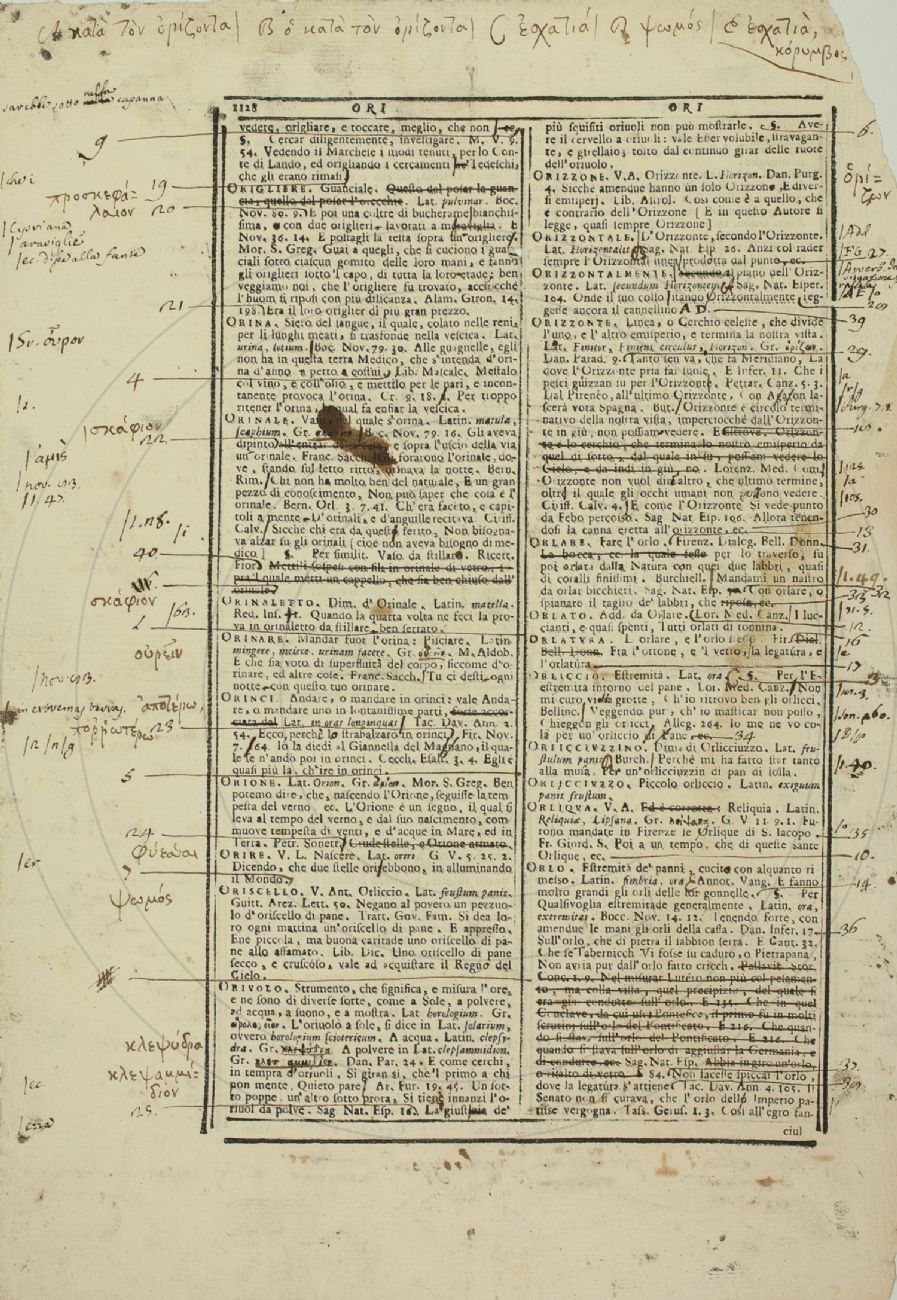 A κατὰ τὸν ὁρίζοντα| B ὁ κατὰ τὸν ὁρίζοντα| C ἐσχατιά| D ψωμός| E ἐσχατιὰ,
κόρυμβος
sarebbe sotto nella capanna
1128 ORI ORI
vedere, origliare, e toccare, meglio, che non
§. Cercar diligentemente, investigare. M. V. 9.
54. Vedendo il Marchese i modi tenuti, per lo Con-
te di Lando, ed origliando i cercamenti Tedeschi,
che gli erano rimasi
ORIGLIERE. Guanciale. Questo dal posar la guan-
cia, quello dal posar l'orecchie. Lat. pulvinar. Boc.
Nov. 80. 9. E poi una coltre di bucherame bianchis-
sima, e con due origlieri lavorati a maraviglia. E
Nov. 36. 14. E postagli la testa sopra un origliere.
Mor. S. Greg. Guai a quegli, che si cuciono i guan-
ciali sotto ciascun gomito delle loro mani, e fanno
gli origlieri sotto 'l capo, di tutta la loro etade; ben
veggiamo noi, che l'origliere fu trovato, acciocchè
l'huom si riposi con più dilicanza. Alam. Giron. 14.
198. Era il loro origlier di più gran prezzo.
ORINA. Siero del sangue, il quale, colato nelle reni,
per li lunghi meati, si trasfonde nella vescica. Lat.
urina, lotium. Boc. Nov. 79. 30. Alle guagnele, egli
non ha in questa terra Medico, che s'intenda d'ori-
na d'asino a petto a costui. Lib. Mascalc. Mestalo
col vino, e coll'olio, e mettilo per le nari, e incon-
tanente provoca l'orina. Cr. 9. 18. Per troppo
ritener l'orina, la qual fa enfiar la vescica.
ORINALE. Vaso, nel quale s'orina. Latin. matula,
scaphium. Gr. Boc. Nov. 79. 16. Gli aveva
dipinto e sopra l'uscio della via
un'orinale. Franc. Sacch. Gli forarono l'orinale, do-
ve, stando sul letto ritto, orinava la notte. Bern.
Rim. Chi non ha molto ben del naturale, E un gran
pezzo di conoscimento, Non può saper che cosa è l'
orinale. Bern. Orl. 3. 7. 41. Ch'era faceto, e capi-
toli a mente, D'orinali, e d'anguille recitova. Ciriff.
Calv. Sicchè chi era da questi ferito, Non bisogna-
va alzar su gli orinali [cioè non aveva bisogno di me-
dico] §. Per similit. Vaso da stillare. Ricett.
Fior. Metti i sospesi con fila in orinale di vetro,
pra'l quale metti un cappello, che sia ben chiuso dall'
orinale.
ORINALETTO. Dim. d'Orinale. Latin. matella.
Red. Ins. Quando la quarta volta ne feci la pro-
va in orinaletto da stillare, ben serrato.
ORINARE. Mandar fuor l'orina; Pisciare. Latin.
mingere, meiere, urinam facere. Gr. οὐρεῖν. M. Aldob.
E che sia voto di superfluità del corpo, siccome d'o-
rinare, ed altre cose. Franc. Sacch. Tu ci desti ogni
notte con questo tuo orinare.
ORINCI. Andare, o mandare in orinci: vale Anda-
re, o mandare uno in lontanissime parti,
Lat. in oras longinquas. Tac. Dav. Ann. 2.
54. Ecco, perchè lo strabalzaro in orinci. Fir. Nov.
7. 64. Io la diedi al Giannella del Magnano, il qua-
le se n'andò poi in orinci. Cecch. Esalt. 3. 4. Egli è
quasi più là, ch'ire in orinci.
ORIONE. Lat. Orion. Gr. Mor. S. Greg. Ben
potremo dire, che, nascendo l'Orione, seguisse la tem-
pesta del verno ec. L'Orione è un segno, il qual si
leva al tempo del verno, e dal suo nascimento, com-
muove tempesta di venti, e d'acque in Mare, ed in
Terra. Petr. Sonett. Crude stelle, e Orione armato.
ORIRE. V. L. Nascere. Lat. oriri. G. V. 5. 25. 2.
Dicendo, che due stelle orirebbono, in alluminando
il Mondo.
ORISCELLO. V. Ant. Orliccio. Lat. frustum panis.
Guitt. Arez. Lett. 50. Negano al povero un pezzuo-
lo d'oriscello di pane. Tratt. Gov. Fam. Si dea lo-
ro ogni mattina un'oriscello di pane. E appresso.
Ene piccola, ma buona caritade uno oriscello di pa-
ne allo affamato. Lib. Dic. Uno oriscello di pane
secco, e cruscoso, vale ad acquistare il Regno del
Cielo.
ORIVOLO. Strumento, che significa, e misura l'ore,
e ne sono di diverse sorte, come a Sole, a polvere,
ad acqua, a suono, e a mostra. Lat. horologium. Gr.
L'oriuolo a sole, si dice in Lat. solarium,
ovvero horologium sciotericum. A acqua. Latin. clepsy-
dra. Gr. A polvere in Lat. clepsammidion.
Gr. Dan. Par. 24. E come cerchi,
in tempra d'oriuoli, Si giran sì, che 'l primo a chi
pon mente, Quieto pare. Ar. Fur. 19. 45. Un sot-
to poppe, un'altro sotto prora, Si tiene innanzi l'o-
riuol da polve. Sag. Nat. Esp. 16. La giustezza de'
più squisiti oriuoli non può mostrarle. §. Ave-
re il cervello a oriuoli: vale Esser volubile, stravagan-
te, e girellaio; tolto dal continuo girar delle ruote
dell'oriuolo.
ORIZZONE. V. A. Orizzonte. L. Horizon. Dan. Purg.
4. Sicchè amendue hanno un solo Orizzone, E diver-
si emisperj. Lib. Astrol. Così come è a quello, che
è contrario dell'Orizzone [E in questo Autore si
legge, quasi sempre Orizzone]
ORIZZONTALE. L'Orizzonte, secondo l'Orizzonte.
Lat. Horizontalis. Sag. Nat. Esp. 26. Anzi col rader
sempre l'Orizzontal linea prodotta dal punto, ec.
ORIZZONTALMENTE. Secondo il piano dell'Oriz-
zonte. Lat. secundum Horizontem. Sag. Nat. Esper.
104. Onde il suo collo stando Orizzontalmente, reg-
gesse ancora il cannellino A D.
ORIZZONTE. Linea, o Cerchio celeste, che divide
l'uno, e l'altro emisperio, e termina la nostra vista.
Lat. Finitor, Finiens circulus, Horizon. Gr. ὁρίζων.
Dan. Parad. 9. Tanto sen va, che fa Meridiano, Là
dove l'Orizzonte pria far suole. E Infer. 11. Che i
pesci guizzan su per l'Orizzonte. Petrar. Canz. 5. 3.
Dal Pireneo, all'ultimo Orizzonte, Con Aragon la-
scerà vota Spagna. But. Orizzonte è circolo termi-
nativo della nostra vista, impercioccè dall'Orizzon-
te in giù, non possiam vedere. E altrove. Orizzon-
te è lo cerchio, che termina lo nostro emisperio da
quel di sotto, dal quale in su, possiam vedere lo
Cielo, e da indi in giù, no. Lorenz. Med. Com.
Orizzonte non vuol dir altro, che ultimo termine,
oltre il quale gli occhi umani non possono vedere.
Ciriff. Calv. 4. E come l'Orizzonte Si vede punto
da Febo percosso. Sag. Nat. Esp. 106. Allora tenen-
dosi la canna eretta all'orizzonte, ec.
ORLARE. Fare l'orlo. Firenz. Dialog. Bell. Donn.
La bocca, ec. la quale fesse per lo traverso, fu
poi orlata dalla Natura con quei due labbri, quasi
di coralli finissimi. Burchiell. Mandami un nastro
da orlar bicchieri. Sag. Nat. Esp. Con orlare, o
spianare il taglio de' labbri, che riposa, ec.
ORLATO. Add. da Orlare. Lor. Med. Canz. I luc-
cianti, e quasi spenti, Tutti orlati di tonnina.
ORLATURA. L'orlare, e l'orlo Fir. Dial.
Bell. Donn. Fra l'ottone, e 'l verno, la legatura, e
l'orlatura.
ORLICCIO. Estremità. Lat. ora. §. Per l'E-
estremità intorno del pane. Lor. Med. Canz. Non
mi curo vista grotte, Ch'io ritrovo ben gli orlicci.
Bellinc. Veggendo pur, ch'io masticar non posso,
Chieggon gli orlicci. Alleg. 264. Io me ne vo co-
là per un'orliccio di pane ec. 34
ORLICCIUZZINO. Dim. di Orlicciuzzo. Lat. fru-
stulum panis. Burch. Perchè mi ha fatto star tanto
alla musa, Per un'orlicciuzzin di pan di solla.
ORLICCIUZZO. Piccolo orliccio. Latin. exiguum
panis frustum.
ORLIQUA. V. A. Ed è corrotta: Reliquia. Latin.
Reliquiæ, Lipsana. Gr. λείψανα. G. V. 11. 9. 1. Fu-
rono mandate in Firenze le Orlique di S. Iacopo
Fr. Giord. S. Poi a un tempo, che di queste sante
Orlique, ec.
ORLO. Estremità de' panni, cucita con alquanto ri-
messo. Latin. fimbria, ora. Annot. Vang. E fanno
molto grandi gli orli delle lor gonnelle. §. Per
Qualsivoglia estremitade generalmente. Latin. ora,
extremitas. Bocc. Nov. 14. 12. Tenendo forte, con
amendue le mani gli orli della cassa. Dan. Infer. 17.
Sull'orlo, che di pietra il sabbion serra. E Cant. 32.
Che se Tabernicch Vi fosse su caduto, o Pietrapana,
Non avria pur dall'orlo fatto cricch. Pallavic. Stor.
Conc. 1. 9. Nel misurar Lutero non più col pensamen-
to, ma colla vista, quel precipizio, del quale si
era già condotto sull'orlo. E 135. Che in quel
Conclave, da cui uscì Pontefice, il primo fu in molti
scrutinj sull'orlo del Pontificato. E 216. Che quan-
do si stava sull'orlo del Pontificato. E 216. Che
quando si stava sull'orlo di aggiustar la Germania, e
di renderla, ec. Sag. Nat. Esp. Abbia in giro un'orlo,
o rialto di vetro. E 84. Non facesse spiccar l'orlo,
dove la legatura s'attiene. Tac. Dav. Ann. 4. 105. Il
Senato non si curava, che l'orlo dello Imperio pa-
tisse vergogna. Tass. Gerus. 1. 3. Così all'egro fan-
ciul
9
19
προσκεφά-
λαιον
20
21
οὖρον
4
σκάφιον
22
ἀμὶς
40
σκάφιον
οὐρεῖν
ἀποτέρω,
πορρωτέρω
23
5
24
φύεσθαι
7
ψωμός
κλεψύδρα
κλεψαμμί-
διον
25
6.
ὁρί-
ζων
27
39
29
30
13
31
12
16
17
35
10
14
36